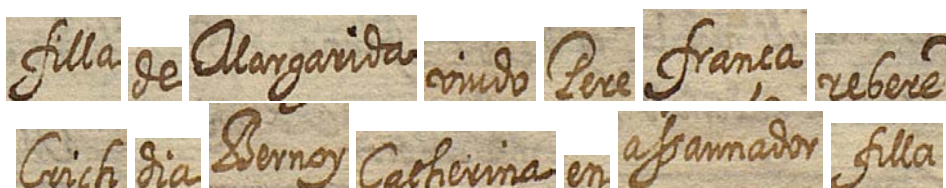 filla de Margarida viudo Pere franca reberē
Crich dia Bernoy Catherina en assaunador filla